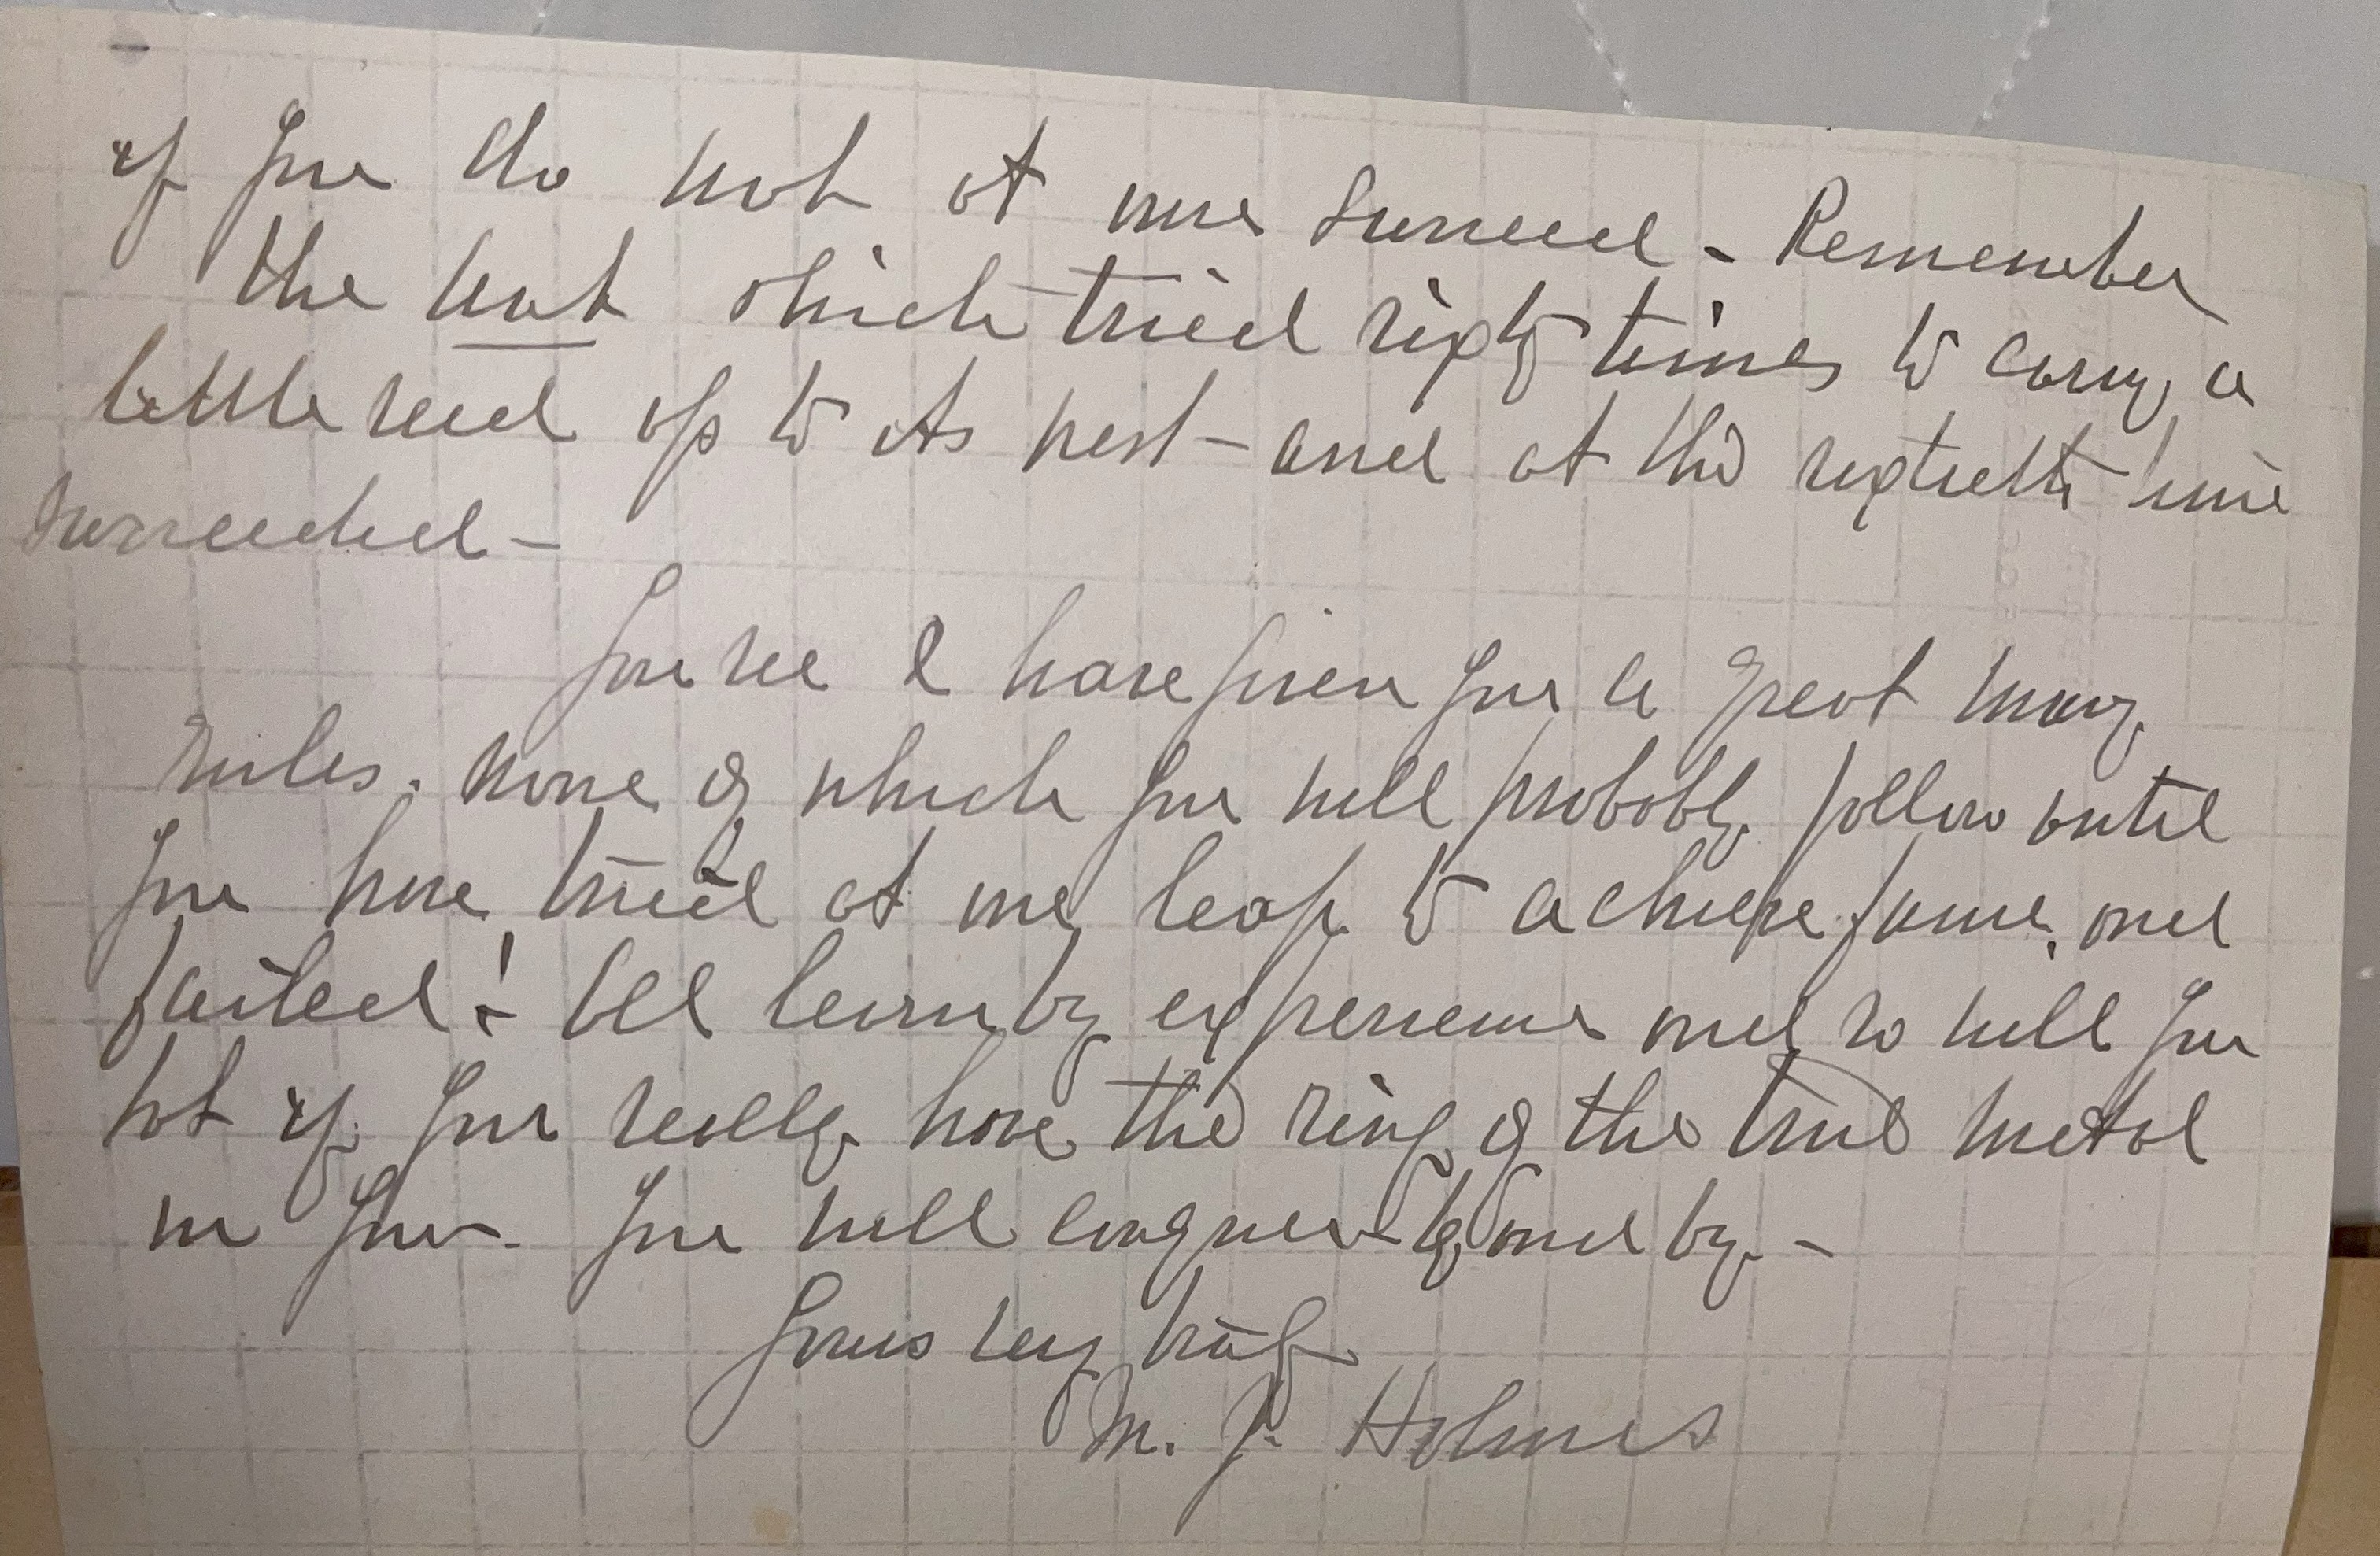 if you do not at once succeed - Remember
the ant which tried sixty times to carry a
little seed up to its nest - and at the sixtieth time
succeeded -
You see I have given you a great many
rules. None of which you will probably follow until
you have tried at one leap to achieve fame, and
failed! All learn by experience and so will you
but if you really have the ring of the true metal
in you - you will conquer by and by. -
Yours very truly
M. J. Holmes